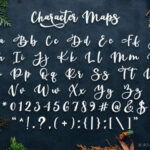 Character Maps
Aa Bb Cc Dd Ee Ff Gg Hh
Ii Jj Kk Ll Mm Nn Oo
Pp Qq Rr Ss Tt Uu
Vv Ww Xx Yy Zz
*0123456789#@&$
"!.?,(+):{|};[\]"